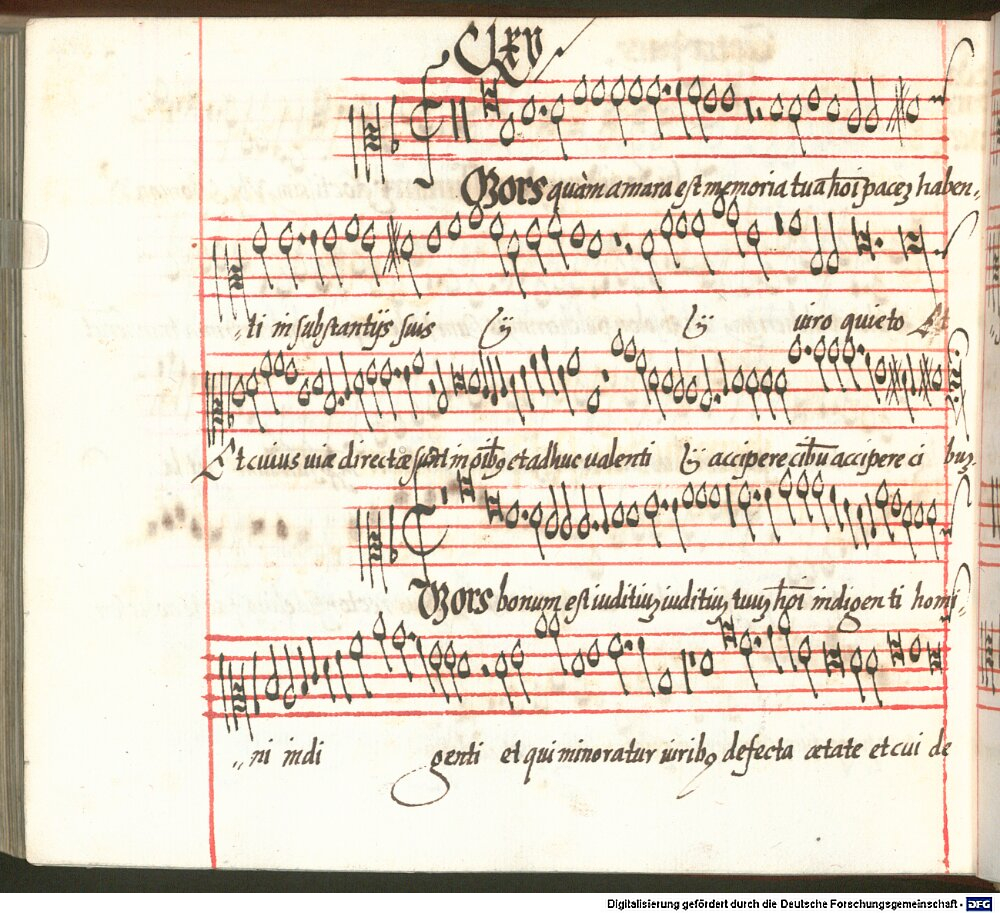 Clxv
Mors quàm amara est memoria tua hōi pacēȝ haben„
„ti in substantijs suis ij ij viro quieto Et
Et cuius viæ directæ sunt in oībꝰ et adhuc valenti ij accipere cibū accipere ci buȝ
Mors bonum est iuditiuȝ iuditiuȝ tuuȝ hōi indigenti homi„
„ni indi genti et qui minoratur viribꝰ defecta ætate et cui de
Digitalisierung gefördert durch die Deutsche Forschungsgemeinschaft - DFG